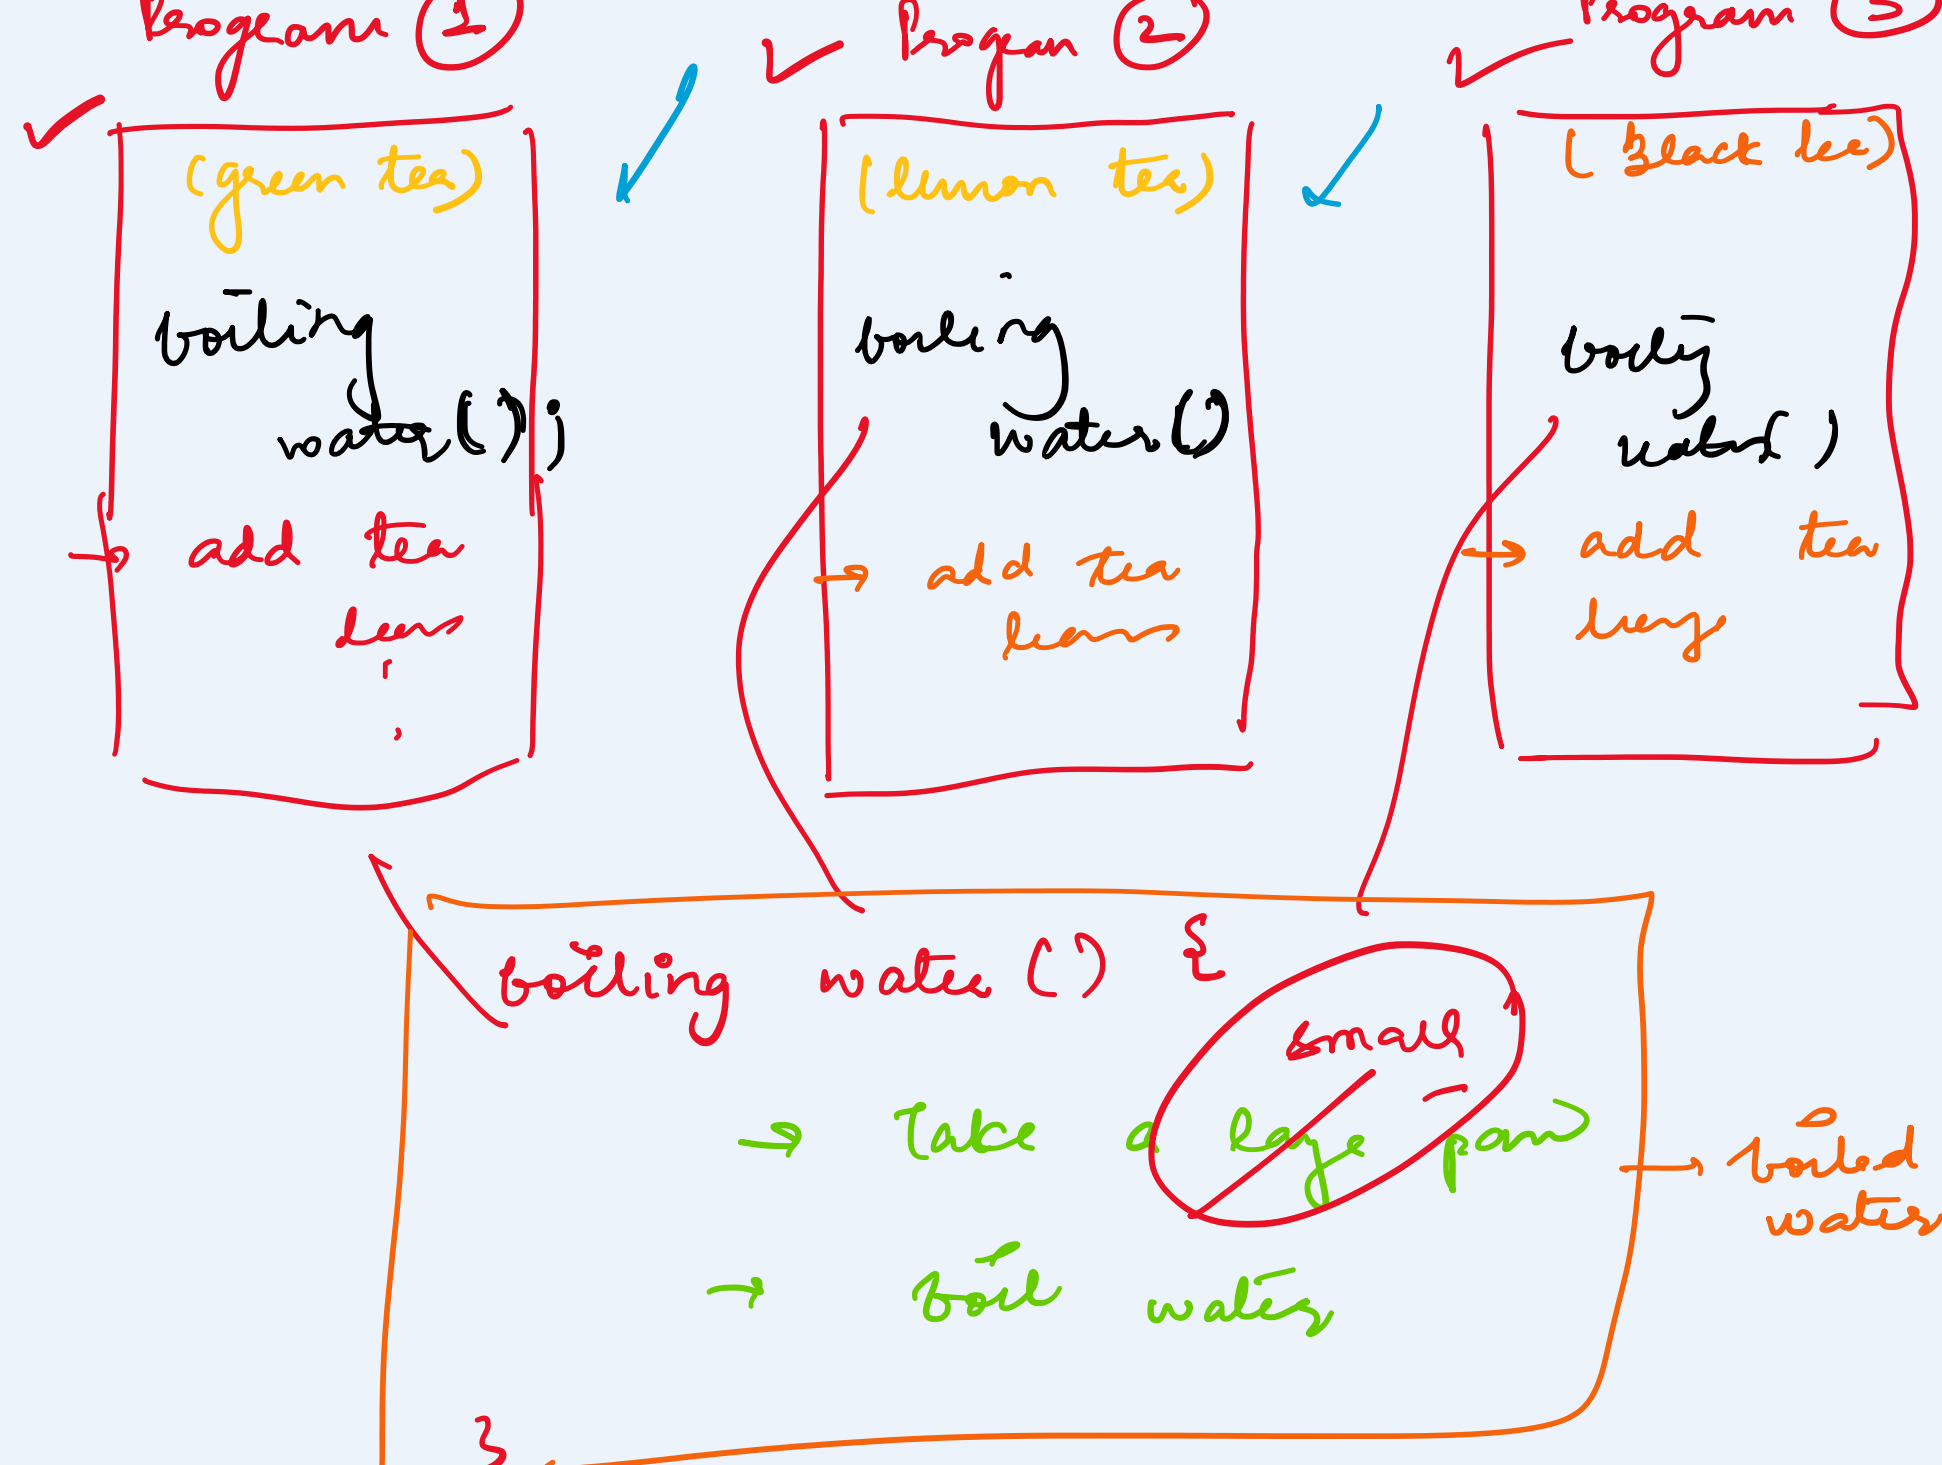 Program 1
(green tea)
boiling
water();
add tea
leaves
Program 2
(lemon tea)
boiling
water()
add tea
leaves
Program 3
(Black tea)
boiling
water()
add tea
boiling water() {
small
→ Take a large pan
→ boil water
}
→ boiled
water